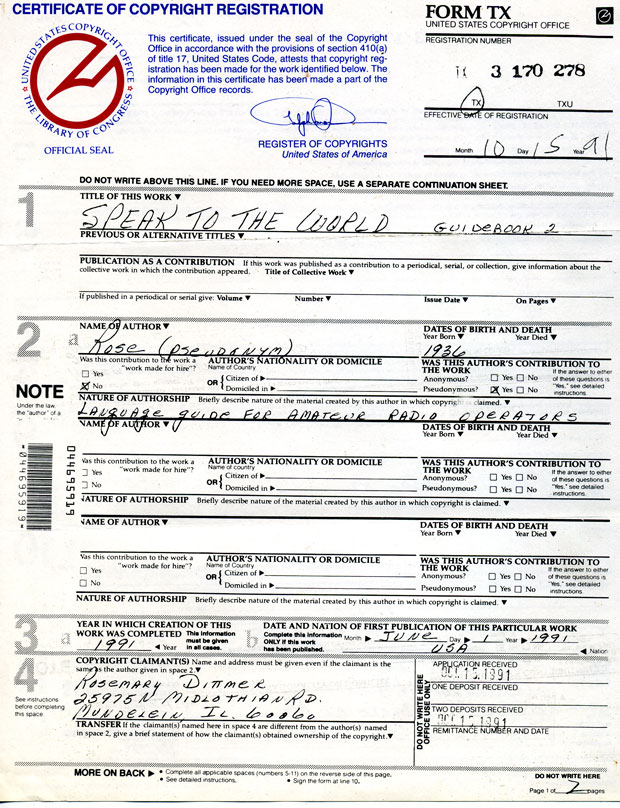 CERTIFICATE OF COPYRIGHT REGISTRATION
FORM TX
UNITED STATES COPYRIGHT OFFICE
UNITED STATES COPYRIGHT OFFICE
THE LIBRARY OF CONGRESS
OFFICIAL SEAL
This certificate, issued under the seal of the Copyright
Office in accordance with the provisions of section 410(a)
of title 17, United States Code, attests that copyright reg-
istration has been made for the work identified below. The
information in this certificate has been made a part of the
Copyright Office records.
REGISTER OF COPYRIGHTS
United States of America
REGISTRATION NUMBER
3 170 278
TX TXU
EFFECTIVE DATE OF REGISTRATION
Month 10 Day 15 Year 91
DO NOT WRITE ABOVE THIS LINE. IF YOU NEED MORE SPACE, USE A SEPARATE CONTINUATION SHEET.
1
TITLE OF THIS WORK ▼
SPEAK TO THE WORLD GUIDEBOOK 2
PREVIOUS OR ALTERNATIVE TITLES ▼
PUBLICATION AS A CONTRIBUTION If this work was published as a contribution to a periodical, serial, or collection, give information about the
collective work in which the contribution appeared. Title of Collective Work ▼
If published in a periodical or serial give: Volume ▼ Number ▼ Issue Date ▼ On Pages ▼
2
NAME OF AUTHOR ▼ DATES OF BIRTH AND DEATH
Year Born ▼ Year Died ▼
a Rose (PSEUDANYM) 1936
Was this contribution to the work a
"work made for hire"?
Yes
No
AUTHOR'S NATIONALITY OR DOMICILE
Name of Country
OR { Citizen of ▶
Domiciled in ▶
WAS THIS AUTHOR'S CONTRIBUTION TO
THE WORK
Anonymous? Yes No
Pseudonymous? Yes No
If the answer to either
of these questions is
"Yes," see detailed
instructions.
NOTE
Under the law,
the "author" of a
NATURE OF AUTHORSHIP Briefly describe nature of the material created by this author in which copyright is claimed. ▼
LANGUAGE GUIDE FOR AMATEUR RADIO OPERATORS
NAME OF AUTHOR ▼ DATES OF BIRTH AND DEATH
Year Born ▼ Year Died ▼
*044695919*
044695919
Was this contribution to the work a
"work made for hire"?
Yes
No
AUTHOR'S NATIONALITY OR DOMICILE
Name of country
OR { Citizen of ▶
Domiciled in ▶
WAS THIS AUTHOR'S CONTRIBUTION TO
THE WORK
Anonymous? Yes No
Pseudonymous? Yes No
If the answer to either
of these questions is
"Yes," see detailed
instructions.
NATURE OF AUTHORSHIP Briefly describe nature of the material created by this author in which copyright is claimed. ▼
NAME OF AUTHOR ▼ DATES OF BIRTH AND DEATH
Year Born ▼ Year Died ▼
Was this contribution to the work a
"work made for hire"?
Yes
No
AUTHOR'S NATIONALITY OR DOMICILE
Name of Country
OR { Citizen of ▶
Domiciled in ▶
WAS THIS AUTHOR'S CONTRIBUTION TO
THE WORK
Anonymous? Yes No
Pseudonymous? Yes No
If the answer to either
of these questions is
"Yes," see detailed
instructions.
NATURE OF AUTHORSHIP Briefly describe nature of the material created by this author in which copyright is claimed. ▼
3
a
YEAR IN WHICH CREATION OF THIS
WORK WAS COMPLETED This information
must be given
in all cases.
1991 ◀ Year
b
DATE AND NATION OF FIRST PUBLICATION OF THIS PARTICULAR WORK
Complete this information
ONLY if this work
has been published.
Month ▶ JUNE Day ▶ 1 Year ▶ 1991
USA ◀ Nation
4
See instructions
before completing
this space.
COPYRIGHT CLAIMANT(S) Name and address must be given even if the claimant is the
same as the author given in space 2.▼
Rosemary Dittmer
25975 N MIDLOTHIAN RD.
MUNDELEIN IL. 60060
TRANSFER If the claimant(s) named here in space 4 are different from the author(s) named
in space 2, give a brief statement of how the claimant(s) obtained ownership of the copyright.▼
DO NOT WRITE HERE
OFFICE USE ONLY
APPLICATION RECEIVED
OCT 15.1991
ONE DEPOSIT RECEIVED
TWO DEPOSITS RECEIVED
OCT 15.1991
REMITTANCE NUMBER AND DATE
MORE ON BACK ▶
• Complete all applicable spaces (numbers 5-11) on the reverse side of this page.
• See detailed instructions. • Sign the form at line 10.
DO NOT WRITE HERE
Page 1 of 2 pages